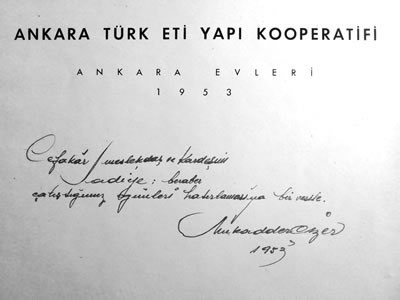 ANKARA TÜRK ETİ YAPI KOOPERATİFİ
ANKARA EVLERİ
1953
Cefakâr meslekdaş ve Kardeşim
beraber
çalıştığımız günleri hatırlamasına bir vesile.
Mukadder
1953